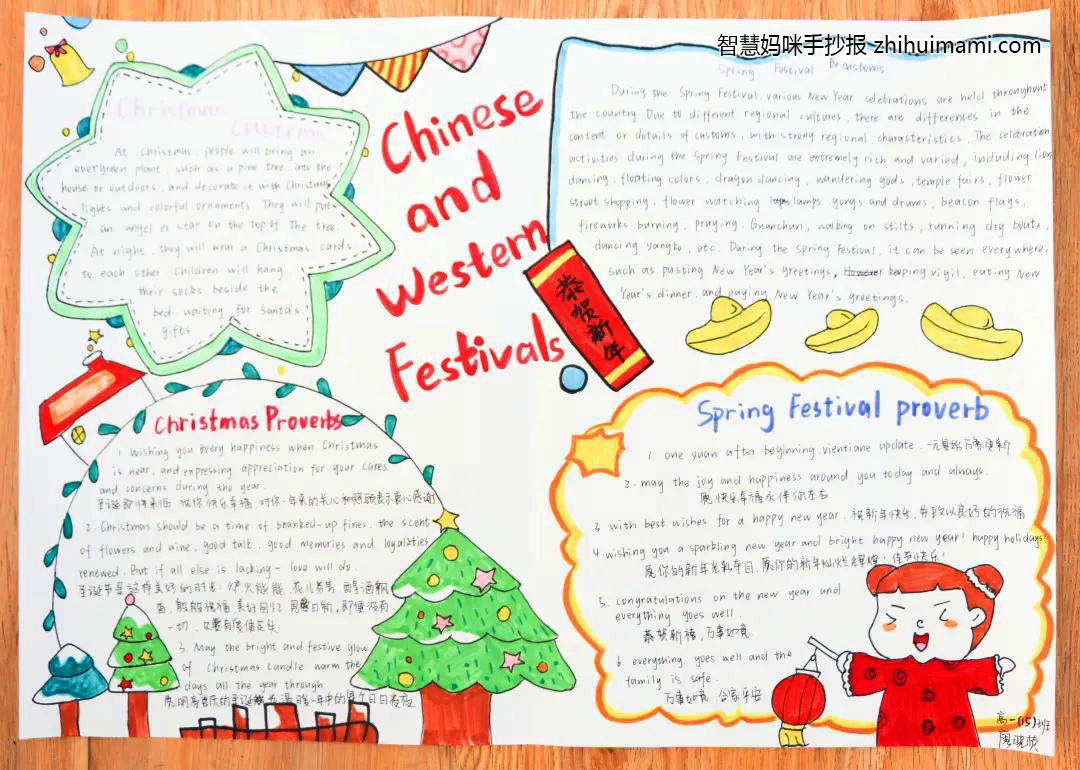 智慧妈咪手抄报 zhihuimami.com
Chinese
and
Western
Festivals
恭贺新年
Christmas
Customs
At Christmas, people will bring an
evergreen plant, such as a pine tree, into the
house or outdoors, and decorate it with Christmas
lights and colorful ornaments. They will put
an angel or star on the top of The tree.
At night, they will wear a Christmas cards
to each other children will hang
their socks beside the
bed, waiting for Santa's
gifts
Spring Festival customs
During the Spring Festival, various New Year celebrations are held throughout
the country. Due to different regional cultures, there are differences in the
content or details of customs, with strong regional characteristics. The celebration
activities during the Spring Festival are extremely rich and varied, including lion
dancing, floating colors, dragon dancing, wandering gods, temple fairs, flower
street shopping, flower watching lamps, gongs and drums, beacon flags,
fireworks burning, praying, Guanchun, walking on stilts, running dry boats,
dancing yangko, etc. During the Spring Festival, it can be seen everywhere,
such as pasting New Year's greetings, keeping vigil, eating New
Year's dinner, and paying New Year's greetings.
Christmas Proverbs
1. Wishing you every happiness when Christmas
is near, and expressing appreciation for your cares
and concerns during the year.
圣诞即将来临 祝你快乐幸福 对你一年来的关心和照顾表示衷心感谢
2. Christmas should be a time of branked-up fines, the scent
of flowers and wine, good talk, good memories and loyalties
renewed. But if all else is lacking - love will do.
圣诞节是这样美好的时光: 炉火熊熊, 花儿芬芳 醇酒飘
香, 殷殷祝福 美好回忆 恩 日新, 即便没有
一切, 只要有爱便足矣
3. May the bright and festive glow
of Christmas candle warm the
days all the year through
Spring Festival proverb
1. one yuan after beginning, vientiane update. 一元复始万象更新
2. may the joy and happiness around you today and always.
愿快乐幸福永伴你左右
3. with best wishes for a happy new year. 祝新年快乐, 并致以良好的祝福
4. wishing you a sparkling new year and bright happy new year! happy holidays!
愿你的新年光彩夺目, 愿你的新年灿烂辉煌! 佳节快乐!
5. congratulations on the new year and
everything goes well.
恭贺新禧, 万事如意
6. everything goes well and the
family is safe.
万事如意 合家平安
高一(15)班